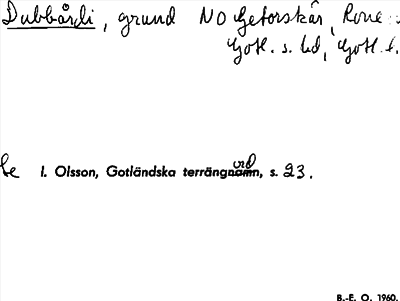 Dubbårdi, grund NO Getorskär, Rone s
Gotl. s. hd, Gotl. l.
be I. Olsson, Gotländska terrängord, s. 23.
B.-E. O. 1960.